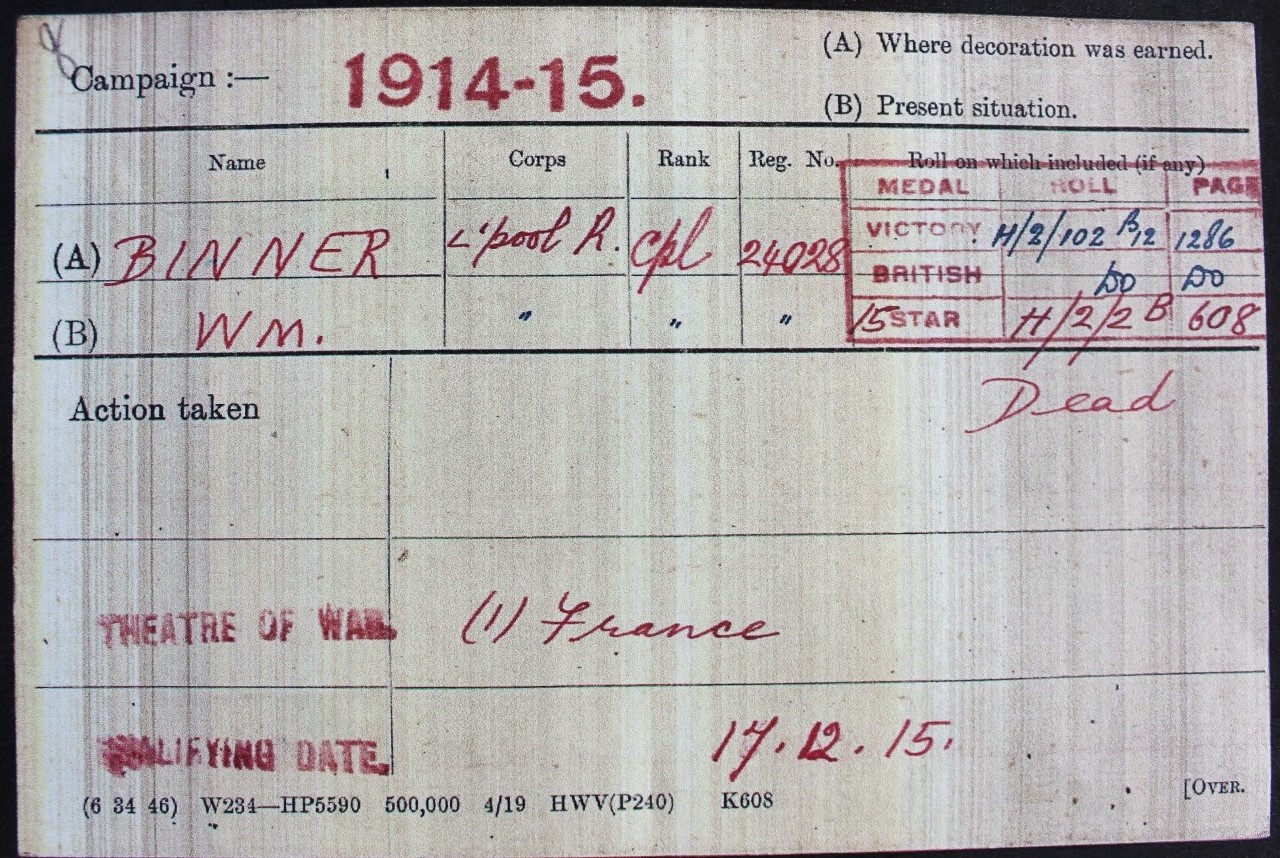 Campaign :— 1914-15. (A) Where decoration was earned.
(B) Present situation.
Name Corps Rank Reg. No. Roll on which included (if any)
MEDAL ROLL PAGE
(A) BINNER L'pool R. Cpl 24028 VICTORY H/2/102 B12 1286
BRITISH DO DO
(B) Wm. " " " 15 STAR H/2/2 B 608
Action taken Dead
THEATRE OF WAR. (1) France
QUALIFYING DATE. 17.12.15.
(6 34 46) W234—HP5590 500,000 4/19 HWV(P240) K608 [OVER.